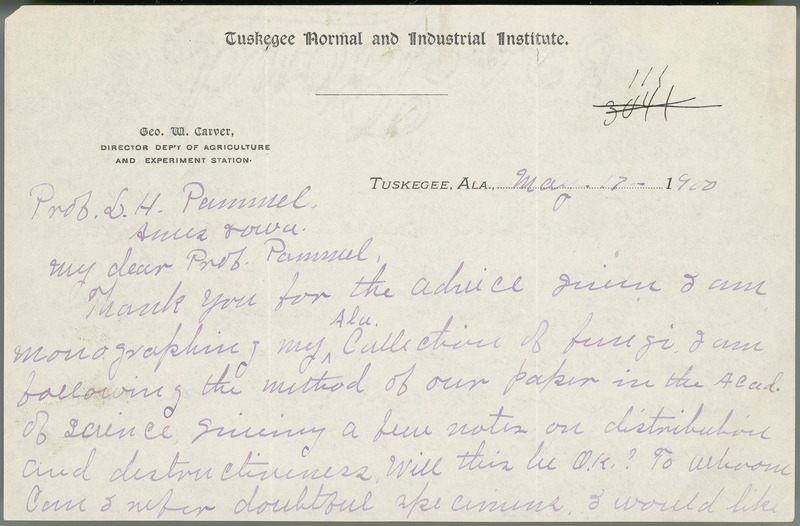 Tuskegee Normal and Industrial Institute.
111
3041
Geo. W. Carver,
DIRECTOR DEP'T OF AGRICULTURE
AND EXPERIMENT STATION.
TUSKEGEE, ALA., May. 17- 1900
Prof. L. H. Pammel.
Ames Iowa.
My dear Prof. Pammel,
Thank you for the advice given I am
monographing my Ala. Collection of fungi, I am
following the method of our paper in the Acad.
of Science, giving a few notes on distribution
and destructiveness. Will this be O.K.? To whoom
Can I refer doubtful specimens, I would like